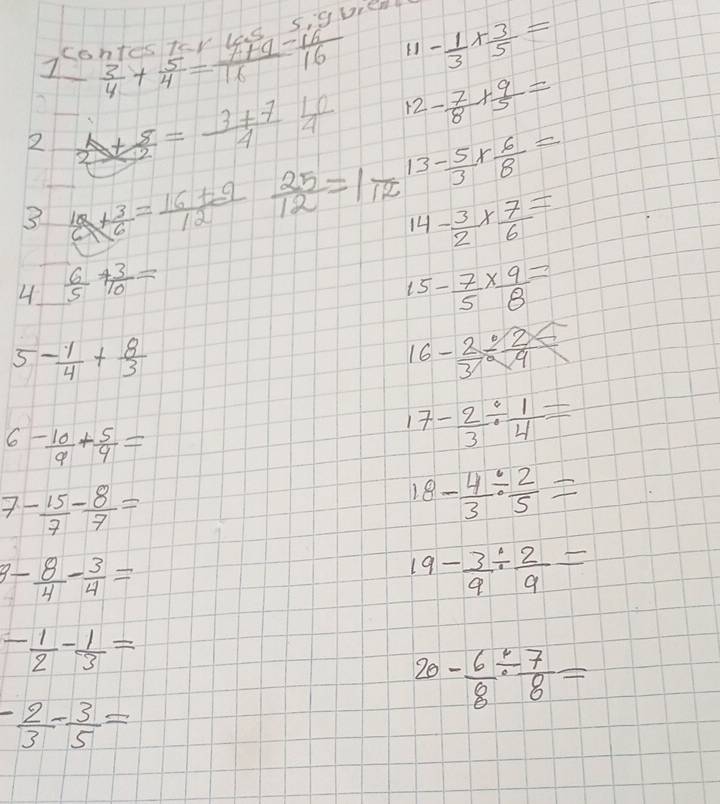 Contestar las
1- 3/4 + 5/4 = 16/16
2 1/2 + 5/2 = 3+7/4 10/4
3 10/6 + 3/6 = 16+9/12 25/12 = 1 /12
4 6/5 + 3/10 =
5 - 1/4 + 8/3
6 - 10/9 + 5/9 =
7 - 15/7 - 8/7 =
8 - 8/4 - 3/4 =
- 1/2 - 1/3 =
- 2/3 - 3/5 =
11 - 1/3 x 3/5 =
12 - 7/8 x 9/5 =
13 - 5/3 x 6/8 =
14 - 3/2 x 7/6 =
15 - 7/5 x 9/8 =
16 - 2/3 ÷ 2/9 =
17 - 2/3 ÷ 1/4 =
18 - 4/3 ÷ 2/5 =
19 - 3/9 ÷ 2/9 =
20 - 6/8 ÷ 7/8 =